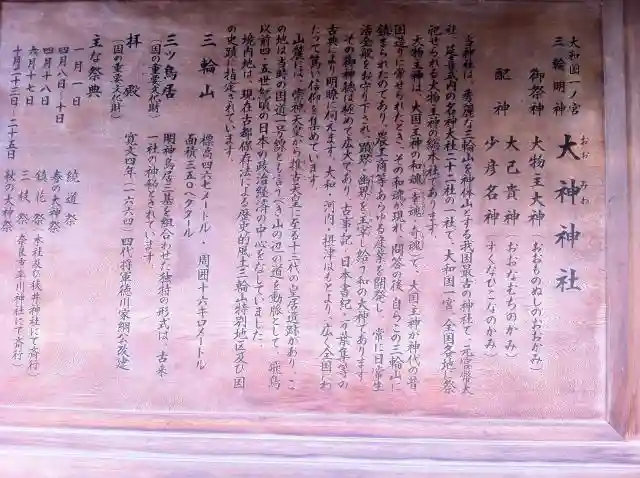 大和国一ノ宮
三輪明神
大神神社
おおみわ
御祭神 大物主大神(おおものぬしのおおかみ)
配神 大己貴神(おおなむちのかみ)
少彦名神(すくなひこなのかみ)
当神社は、秀麗なる三輪山を神体山とする我国最古の神社で、元官幣大
社、延喜式内の名神大社二十二社の一社で、大和国一宮、全国各地に祭
祀せられる大物主神の総本社であります。
大物主神は、大国主神の和魂(幸魂・奇魂)で、大国主神が神代の昔
国造りに寄せられたとき、その和魂が現れ、問答の後、自らこの三輪山に
鎮まられたのであり、農工商等あらゆる産業を開発し、常に日常生
活全般をお守り下され、顕界・幽界を主宰し給う和の大神であります。
その御神徳は極めて広大であり、古事記、日本書紀、万葉集等の
古典により明瞭に伺えます。大和、河内・摂津はもとより、広く全国にわ
たって篤い信仰を集めています。
山麓には、崇神天皇から推古天皇に至る十三代の皇居遺跡があり、こ
の地は当時の国道一号線とも言うべき山の辺の道を動脈として、飛鳥
以前四、五世紀頃の日本の政治経済の中心をなしていました。
境内地は、現在古都保存法による歴史的風土三輪山特別地区及び国
の史跡に指定されています。
三輪山 標高四六七メートル・周囲十六キロメートル
面積三五〇ヘクタール
三ツ鳥居 明神鳥居三基を組合わせた独特の形式は、古来
(国の重要文化財) 一社の神秘とされています。
拝殿 寛文四年(一六六四)四代将軍徳川家綱公改建
(国の重要文化財)
主な祭典
一月一日 繞道祭
四月八日〜十日 春の大神祭
四月十八日 鎮花祭(本社及び狭井神社にて斎行)
六月十七日 三枝祭(奈良市率川神社にて斎行)
十月二十三日〜二十五日 秋の大神祭